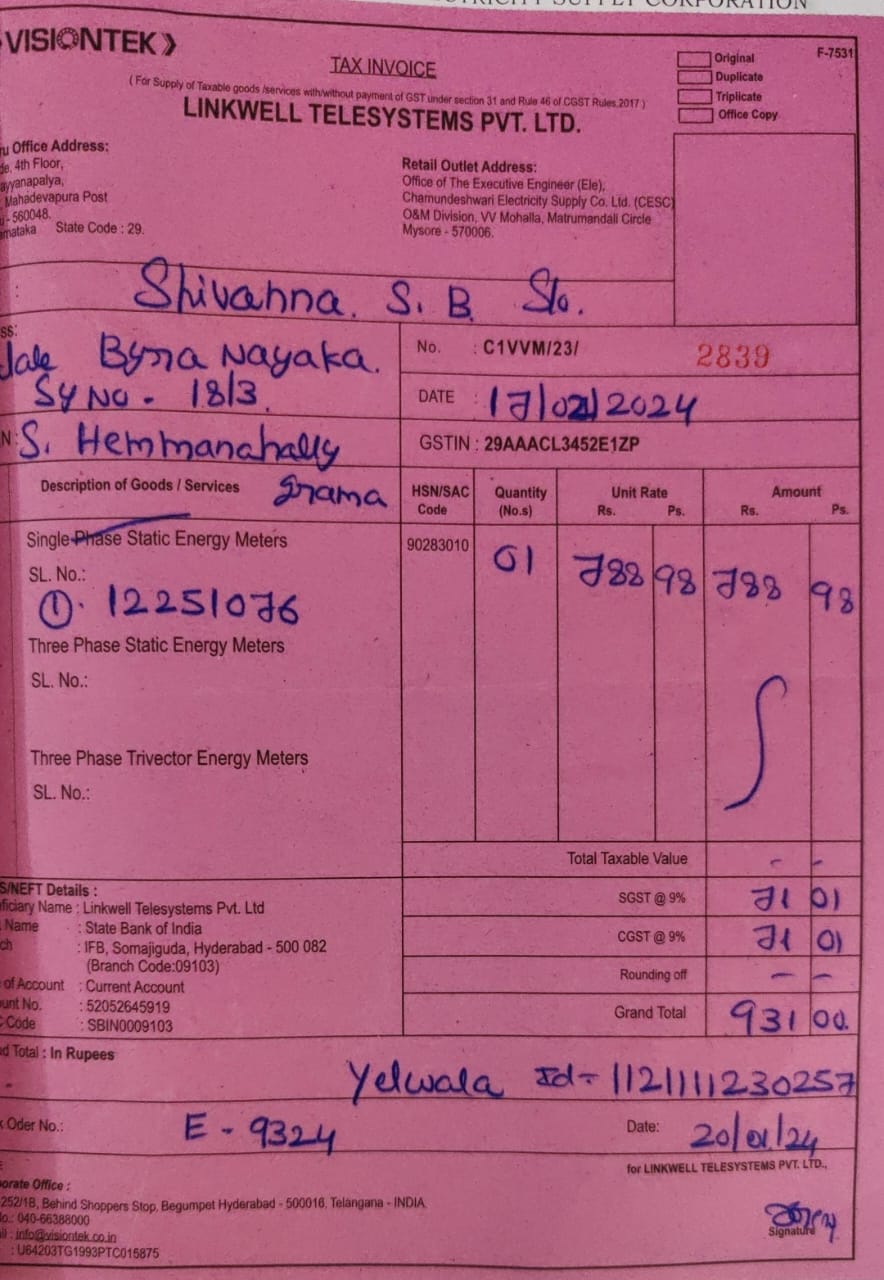 VISIONTEK
TAX INVOICE
Original
F-7531
Duplicate
Triplicate
Office Copy
( For Supply of Taxable goods /services with/without payment of GST under section 31 and Rule 46 of CGST Rules,2017 )
LINKWELL TELESYSTEMS PVT. LTD.
u Office Address:
4th Floor,
ayyanapalya,
Mahadevapura Post
- 560048.
State Code : 29.
Retail Outlet Address:
Office of The Executive Engineer (Ele),
Chamundeshwari Electricity Supply Co. Ltd. (CESC)
O&M Division, VV Mohalla, Matrumandali Circle
Mysore - 570006.
: Shivanna. S. B. S/o.
ss:
Jale Byra Nayaka.
Sy No - 18/3.
N : S. Hemmanahally
No. : C1VVM/23/ 2839
DATE : 17/02/2024
GSTIN : 29AAACL3452E1ZP
Description of Goods / Services Grama
HSN/SAC Code
Quantity (No.s)
Unit Rate Rs. Ps.
Amount Rs. Ps.
Single Phase Static Energy Meters 90283010 01 788 98 788 98
SL. No.:
①. 12251076
Three Phase Static Energy Meters
SL. No.:
Three Phase Trivector Energy Meters
SL. No.:
Total Taxable Value - -
SGST @ 9% 71 01
CGST @ 9% 71 01
Rounding off - -
Grand Total 931 00.
S/NEFT Details :
ficiary Name : Linkwell Telesystems Pvt. Ltd
Name : State Bank of India
ch : IFB, Somajiguda, Hyderabad - 500 082
(Branch Code:09103)
of Account : Current Account
unt No. : 52052645919
Code : SBIN0009103
d Total : In Rupees
Yelwala Id- 1121111230257
Oder No.: E - 9324
Date: 20/01/24
for LINKWELL TELESYSTEMS PVT. LTD.,
orate Office :
252/1B, Behind Shoppers Stop, Begumpet Hyderabad - 500016, Telangana - INDIA.
No.: 040-66388000
il : info@visiontek.co.in
: U64203TG1993PTC015875
Signature